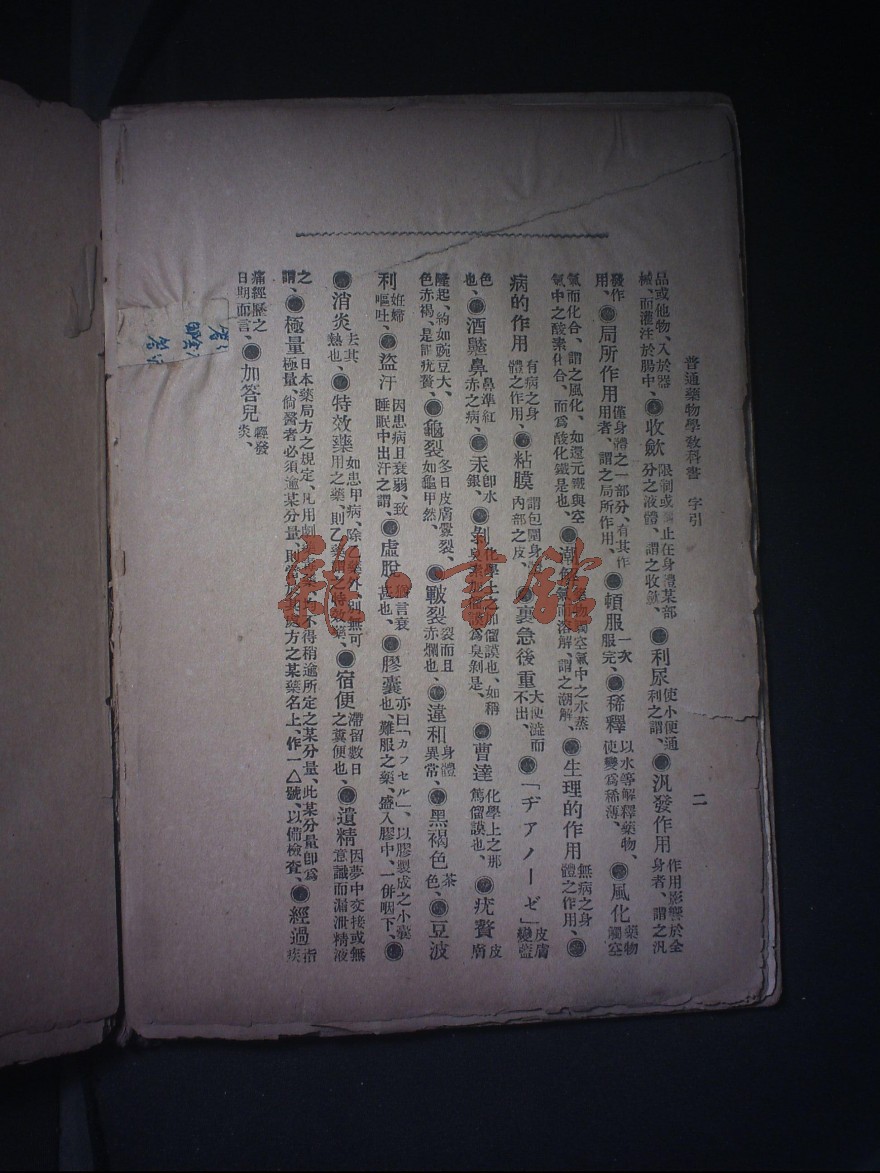 普通藥物學教科書 字引 二
品或他物、入於器械、而灌注於腸中、●收斂 限制或 止在身體某部分之液體、謂之收斂、●利尿 使小便通利之謂、●汎發作用 作用影響於全身者、謂之汎
發作用、●局所作用 僅身體之一部分、有其作用者、謂之局所作用、●頓服 一次服完、●稀釋 以水等解釋藥物、使變爲稀薄、●風化 藥物觸空
氣而化合、謂之風化、如還元鐵與空氣中之酸素化合、而爲酸化鐵是也、●潮解 藥物觸空氣中之水蒸氣而溶解、謂之潮解、●生理的作用 無病之身體之作用、●
病的作用 有病之身體之作用、●粘膜 謂包圍身體內部之皮、●裏急後重 大便澁而不出、●「ヂアノーゼ」 皮膚變藍
色也、●酒齇鼻 鼻準紅赤之病、●汞 卽水銀、●剝 化學上之加僱謨也、如稱臭素加僱謨爲臭剝是、●曹達 化學上之那篤僱謨也、●疣贅 皮膚
隆起、約如豌豆大、色赤褐、是謂疣贅、●龜裂 冬日皮膚釁裂、如龜甲然、●皸裂 裂而且赤爛也、●違和 身體異常、●黑褐色 茶色、●豆波
利 妊婦嘔吐、●盜汗 因患病且衰弱、致睡眠中出汗之謂、●虛脫 猶言衰甚也、●膠囊 亦曰「カフセル」、以膠製成之小囊也、難服之藥、盛入膠中、一併咽下、●
●消炎 去其熱也、●特效藥 如患甲病、除乙藥外、別無可用之藥、則乙藥謂之特效藥、●宿便 滯留數日之糞便也、●遺精 因夢中交接或無意識而漏泄精液
之謂、●極量 日本藥局方之規定、凡用劇 不得稍逾所定之某分量、此某分量卽爲極量、倘醫者必須逾某分量、則當 處方之某藥名上、作一△號、以備檢查、●經過 指疾
痛經歷之日期而言、●加答兒 輕發炎、